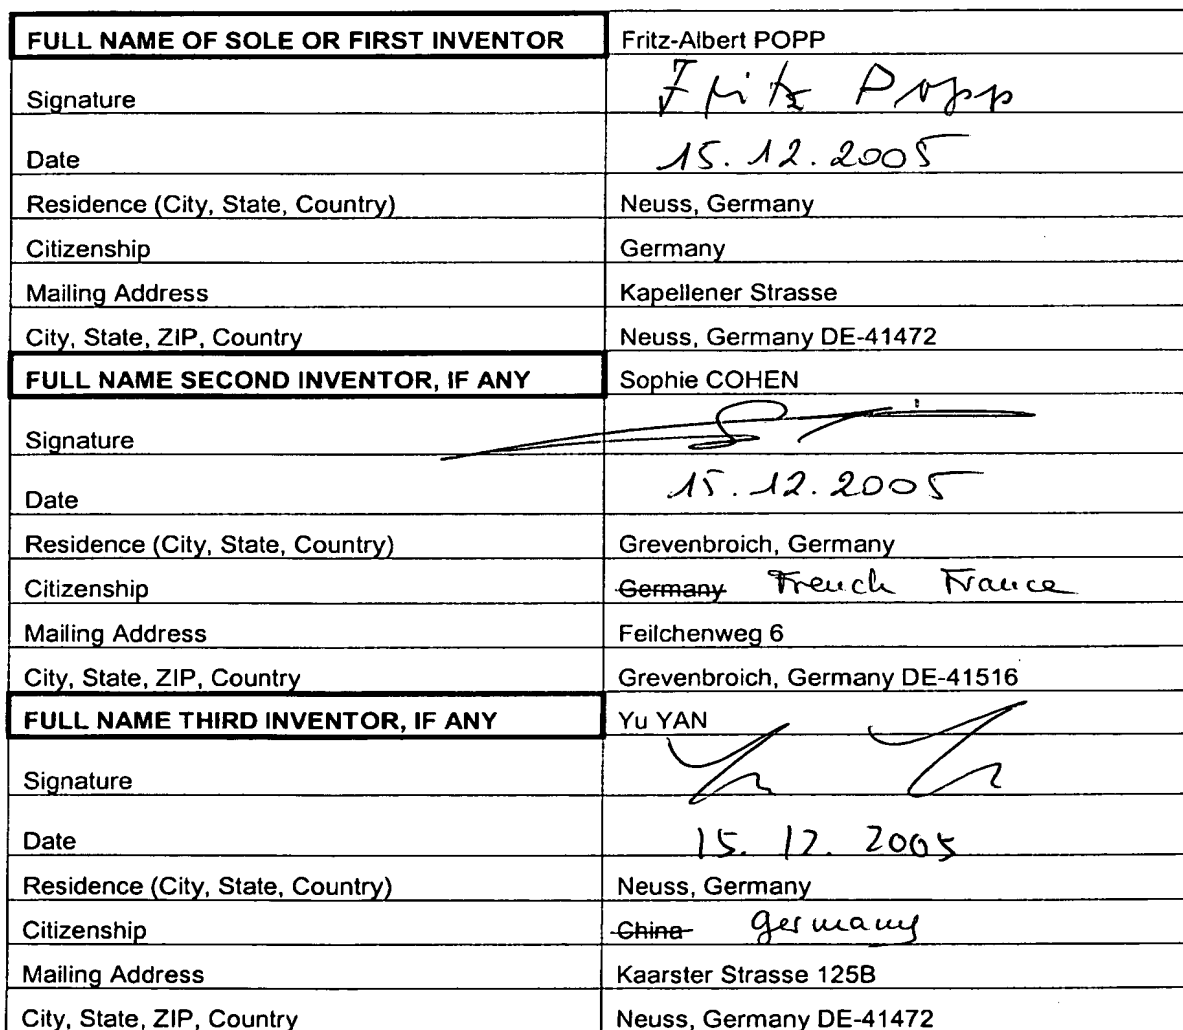 FULL NAME OF SOLE OR FIRST INVENTOR Fritz-Albert POPP
Signature Fritz Popp
Date 15.12.2005
Residence (City, State, Country) Neuss, Germany
Citizenship Germany
Mailing Address Kapellener Strasse
City, State, ZIP, Country Neuss, Germany DE-41472
FULL NAME SECOND INVENTOR, IF ANY Sophie COHEN
Signature
Date 15.12.2005
Residence (City, State, Country) Grevenbroich, Germany
Citizenship Germany French France
Mailing Address Feilchenweg 6
City, State, ZIP, Country Grevenbroich, Germany DE-41516
FULL NAME THIRD INVENTOR, IF ANY Yu YAN
Signature
Date 15. 12. 2005
Residence (City, State, Country) Neuss, Germany
Citizenship China Germany
Mailing Address Kaarster Strasse 125B
City, State, ZIP, Country Neuss, Germany DE-41472